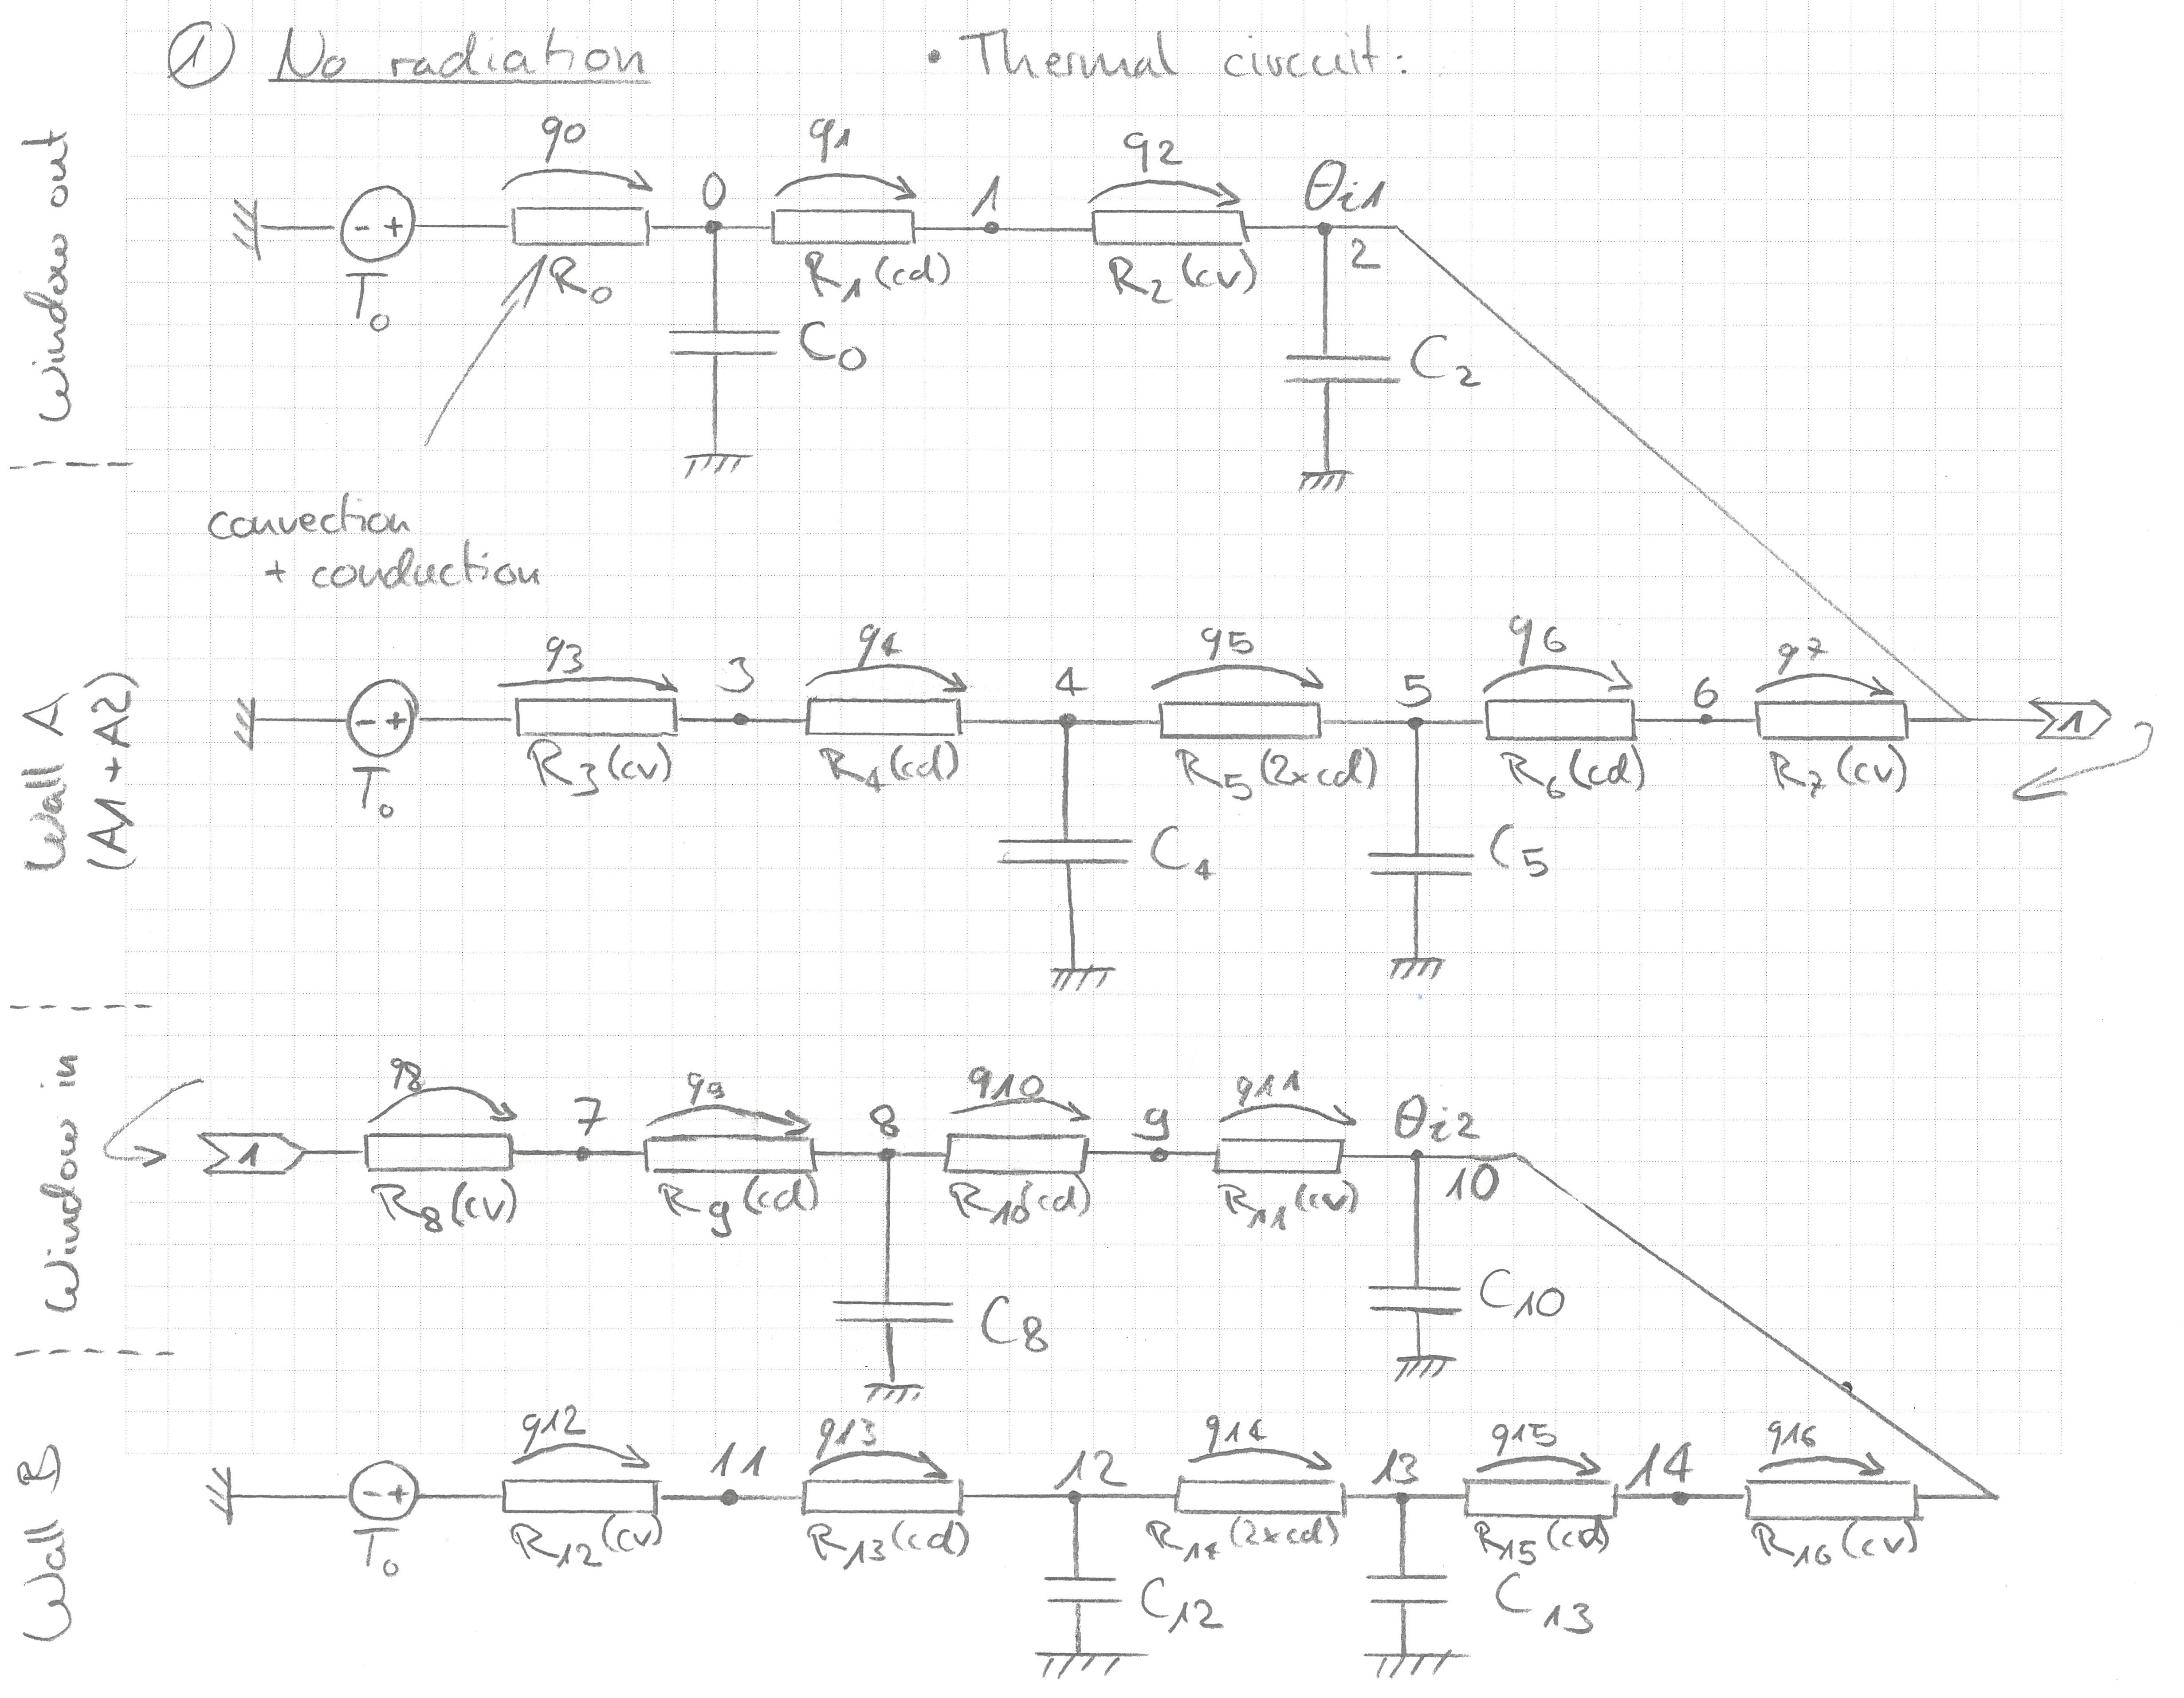 ① No radiation • Thermal circuit:
Window out
q0 q1 q2
0 1 θi1
- + 2
T0 R0 R1 (cd) R2 (cv)
C0 C2
convection
+ conduction
Wall A
(A1 + A2)
q3 q4 q5 q6 q7
3 4 5 6
- + 1
T0 R3 (cv) R4 (cd) R5 (2xcd) R6 (cd) R7 (cv)
C4 C5
Window in
q8 q9 q10 q11
7 8 9 θi2
1 10
R8 (cv) R9 (cd) R10 (cd) R11 (cv)
C8 C10
Wall B
q12 q13 q14 q15 q16
11 12 13 14
- +
T0 R12 (cv) R13 (cd) R14 (2xcd) R15 (cd) R16 (cv)
C12 C13